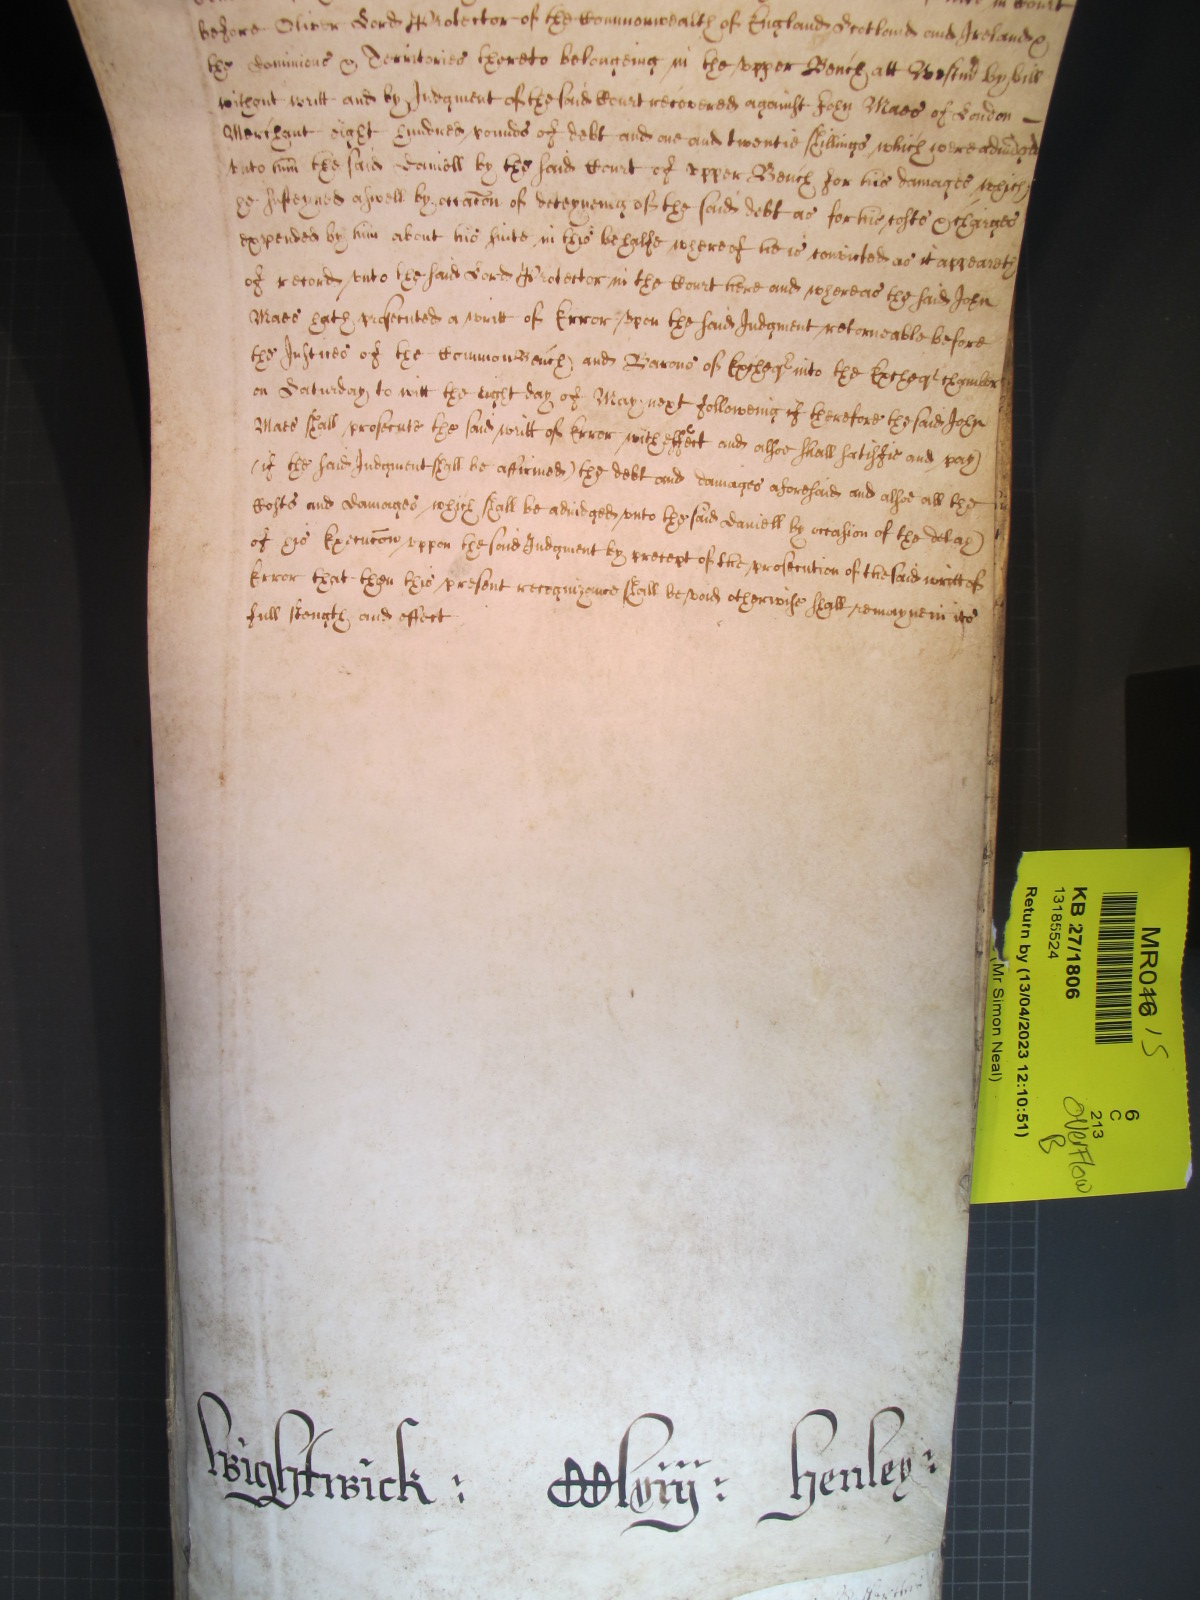 before Oliver Lord Protector of the Commonwealth of England Scotland and Ireland &
the Dominions & Territories thereto belongeing in the vpper Bench att Westmr by bill
without writt and by Judgment of the said Court recovered against John Maes of London
Merchant eight hundred pounds of debt and one and twentie shillings which were adiudged
vnto him the said Daniell by the said Court of vpper Bench for his damages which
he susteyned aswell by occacon of deteyneing of the said debt as for his costs & charges
expended by him about his suite in this behalfe whereof he is convicted as it appeareth
of record vnto the said Lord Protector in the Court here and whereas the said John
Maes hath prosecuted a writt of Error vpon the said Judgment retorneable before
the Justices of the Common Bench and Barons of Exchequr into the Exchequr chamber
on Saturday to witt the eight day of May next followeing if therefore the said John
Maes shall prosecute the said writt of Error with effect and alsoe shall satisfie and pay
(if the said Judgment shall be affirmed) the debt and damages aforesaid and alsoe all the
Costs and Damages which shall be adiudged vnto the said Daniell by occasion of the delay
of his Execucon vppon the said Judgment by precept of the prosecution of the said writt of
Error that then this present recognizance shall be void otherwise shall remayne in its
full strength and effect
Wightwick : Mlviij : henley :
MR016 15
KB 27/1806
13185524
Return by (13/04/2023 12:10:51)
(Mr Simon Neal)
6
C
213
Overflow
B